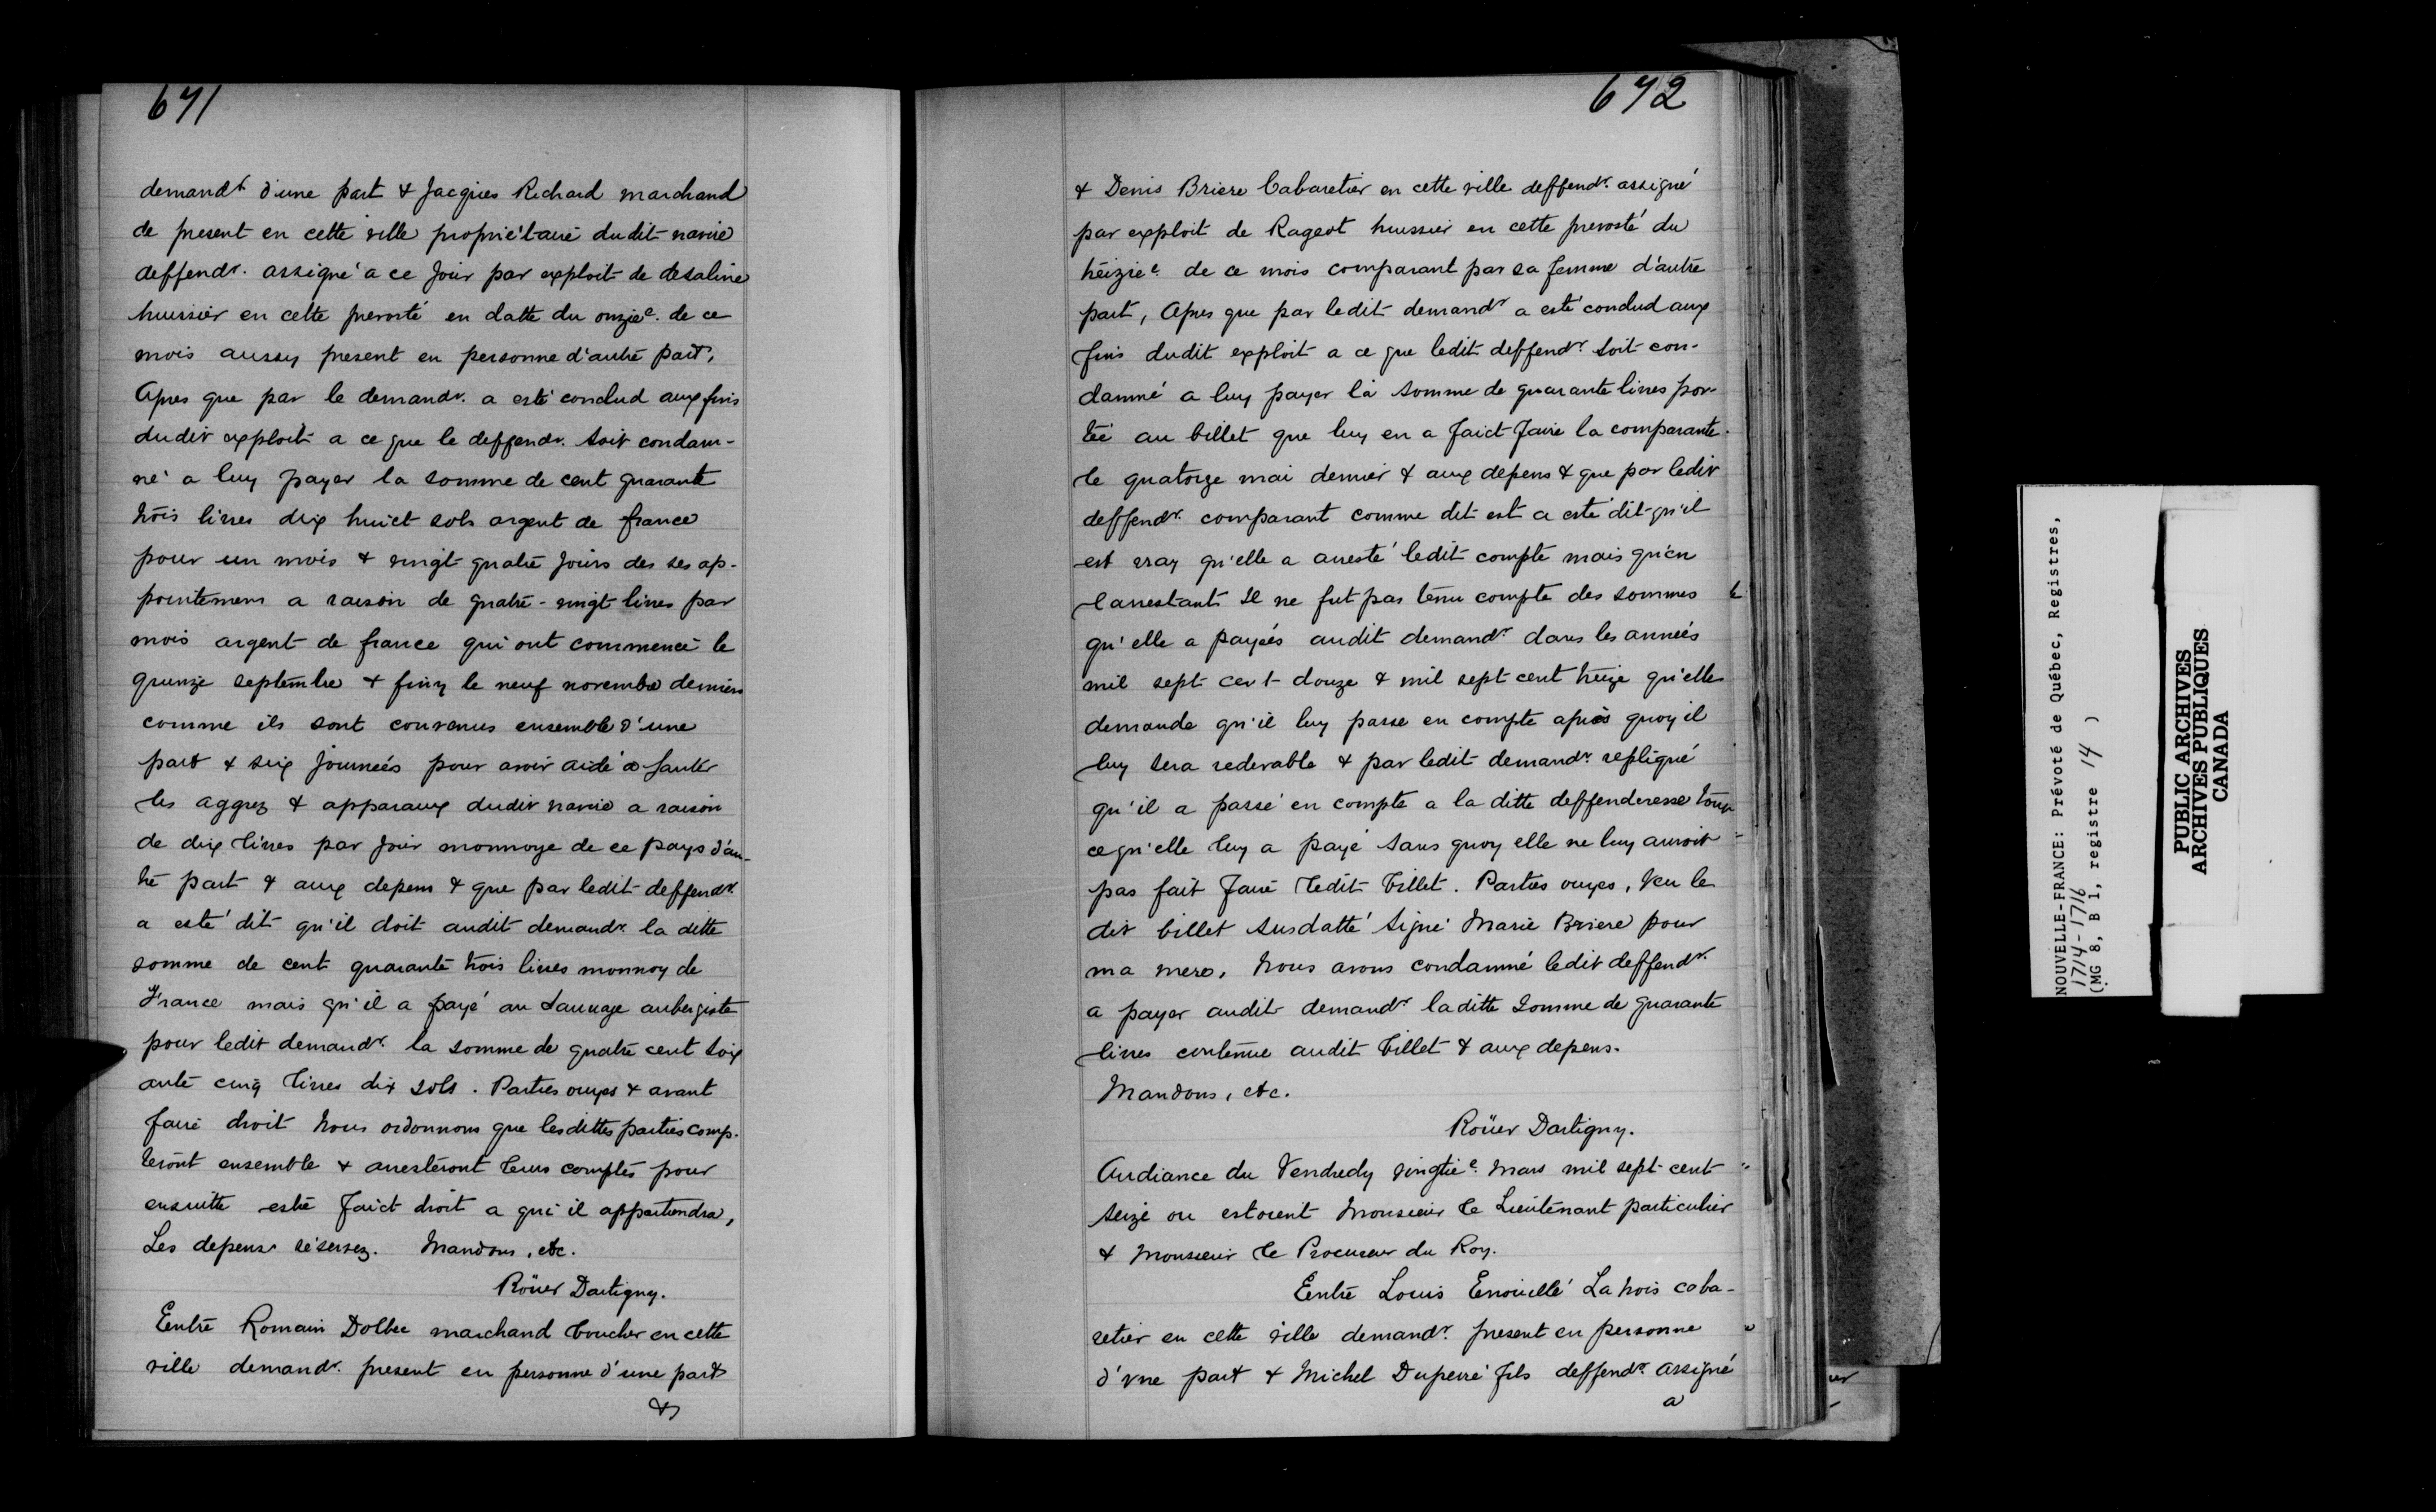 671
demandr d'une part & Jacques Richard marchand
de present en cette ville propriétaire dudit navire
deffendr. assigné a ce Jour par exploit de desaline
huissier en cette prevosté en datte du onzie. de ce
mois aussy present en personne d'autre part,
Apres que par le demandr. a esté conclud aux fins
dudit exploit a ce que le deffendr. soit condam-
né a luy payer la somme de cent quarante
trois livres dix huict sols argent de france
pour un mois & vingt quatre Jours des ses ap-
pointemens a raison de quatre-vingt livres par
mois argent de france qui ont commencé le
quinze septembre & finy le neuf novembre derniers
comme ils sont convenus ensemble d'une
part & six Journeés pour avoir aidé a
les aggrez & apparaux dudit navire a raison
de dix livres par Jour monnoye de ce pays d'au-
tre part & aux depens & que par ledit deffendr.
a esté dit qu'il doit audit demandr. la ditte
somme de cent quarante trois livres monnoy de
France mais qu'il a payé au Sauvage aubergiste
pour ledit demandr. la somme de quatre cent soix
ante cinq livres dix sols. Parties ouyes & avant
faire droit Nous ordonnons que lesdittes parties comp-
teront ensemble & arresteront leurs comptes pour
ensuitte estre Faict droit a qui il appartiendra,
Les depens réservez. Mandons, etc.
Roüer Dartigny.
Entre Romain Dolbec marchand boucher en cette
ville demandr. present en personne d'une part
&
672
& Denis Briere Cabaretier en cette ville deffendr. assigné
par exploit de Rageot huissier en cette prevosté du
treizie. de ce mois comparant par sa femme d'autre
part, Apres que par ledit demandr a esté conclud aux
fins dudit exploit a ce que ledit deffendr. soit con-
damné a luy payer la somme de quarante livres por-
tée au billet que luy en a faict faire la comparante
le quatorze mai dernier & aux depens & que par ledit
deffendr. comparant comme dit est a esté dit qu'il
est vray qu'elle a arresté ledit compte mais qu'en
larrestant Il ne fut pas tenu compte des sommes
qu'elle a payeés audit demandr. dans les anneés
mil sept cent douze & mil sept cent treize qu'elle
demande qu'il luy passe en compte après quoy il
luy sera redevable & par ledit demandr. repliqué
qu'il a passé en compte a la ditte deffenderesse tout
ce qu'elle luy a payé sans quoy elle ne luy auroit
pas fait faire ledit billet. Parties ouyes, Veu le
dit billet susdatté signé Marie Briere pour
ma mere, Nous avons condamné ledit deffendr.
a payer audit demandr laditte somme de quarante
livres contenue audit billet & aux depens.
Mandons, etc.
Roüer Dartigny.
Audiance du Vendredy vingtie. Mars mil sept cent
seize ou estoient Monsieur le Lieutenant particulier
& Monsieur le Procureur du Roy.
Entre Louis Enouillé Lanois caba-
retier en cette ville demandr. present en personne
d'vne part & Michel Duperré fils deffendr. assigné
a
NOUVELLE-FRANCE: Prévoté de Québec, Registres,
1714-1716
(MG 8, B 1, registre 14 )
PUBLIC ARCHIVES
ARCHIVES PUBLIQUES
CANADA